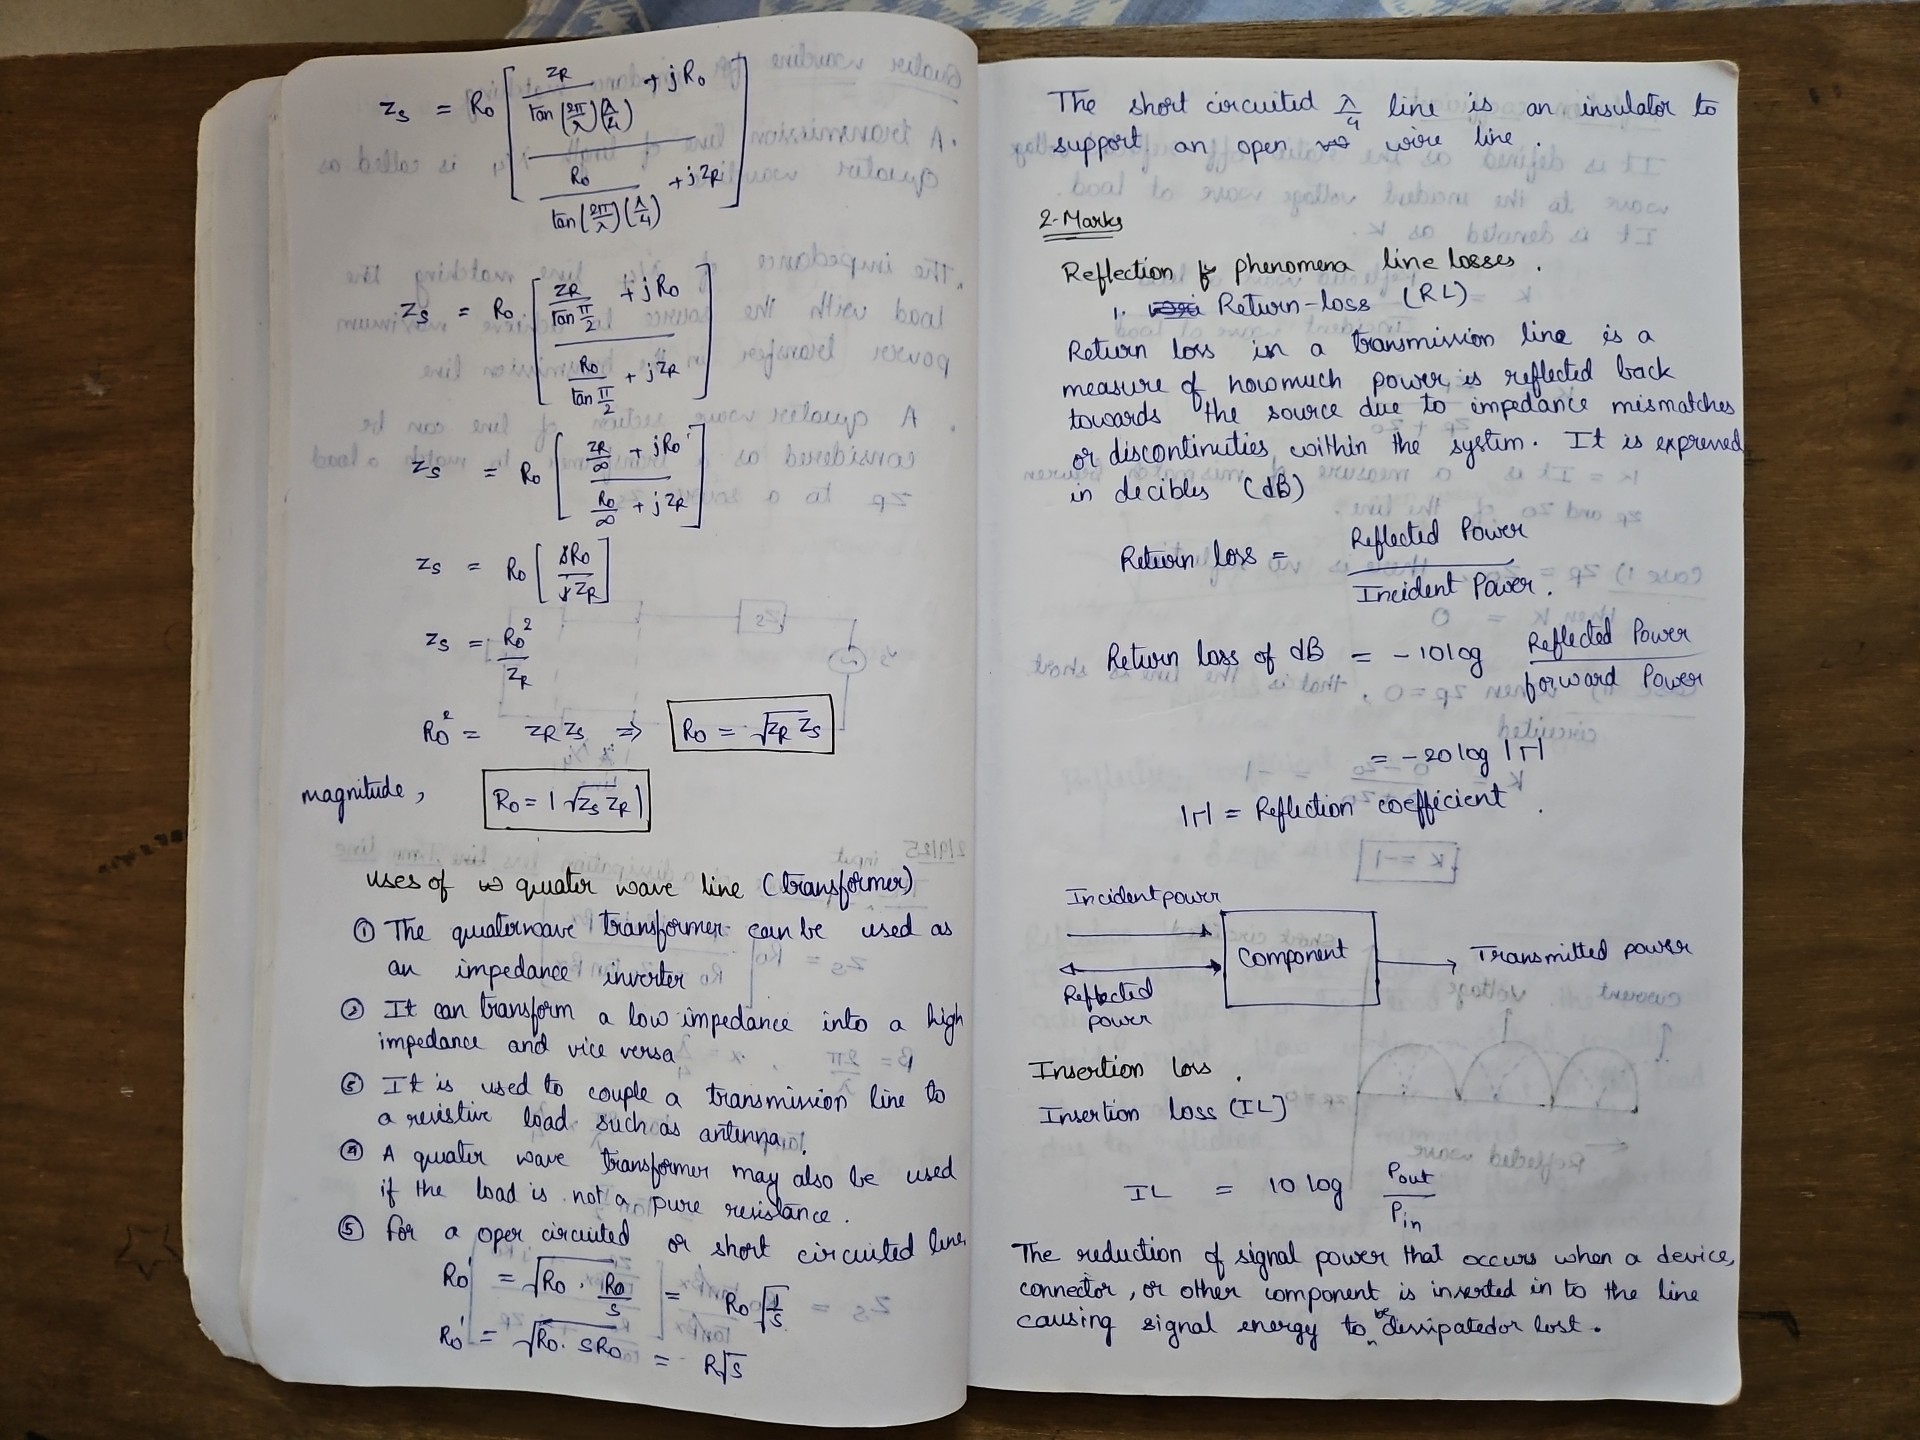 Zs = R0 [ (ZR / tan(2π/λ)(λ/4) + jR0) / (R0 / tan(2π/λ)(λ/4) + jZR) ]
Zs = R0 [ (ZR / tan π/2 + jR0) / (R0 / tan π/2 + jZR) ]
Zs = R0 [ (ZR/∞ + jR0) / (R0/∞ + jZR) ]
Zs = R0 [ jR0 / jZR ]
Zs = R0² / ZR
R0² = ZR Zs ⇒ R0 = √ZR Zs
magnitude, R0 = |√Zs ZR|
uses of quater wave line (transformer)
① The quaterwave transformer can be used as
an impedance inverter
② It can transform a low impedance into a high
impedance and vice versa
③ It is used to couple a transmission line to
a resistive load such as antenna.
④ A quater wave transformer may also be used
if the load is not a pure resistance.
⑤ for a oper circuited or short circuited line
R0' = √R0 · R0/S = R0 √1/S
R0' = √R0 · SR0 = R√S
The short circuited λ/4 line is an insulator to
support an open wire line.
2-Marks
Reflection phenomena line losses.
1. Return-loss (RL)
Return loss in a transmission line is a
measure of howmuch power is reflected back
towards the source due to impedance mismatches
or discontinuties within the system. It is expressed
in decibles (dB)
Return loss = Reflected Power / Incident Power.
Return loss of dB = -10log Reflected Power / forward Power
= -20 log |Γ|
|Γ| = Reflection coefficient.
Incident power
Component
Transmitted power
Reflected
power
Insertion loss.
Insertion loss (IL)
IL = 10 log Pout / Pin
The reduction of signal power that occurs when a device,
connector, or other component is inserted in to the line
causing signal energy to be dissipated or lost.